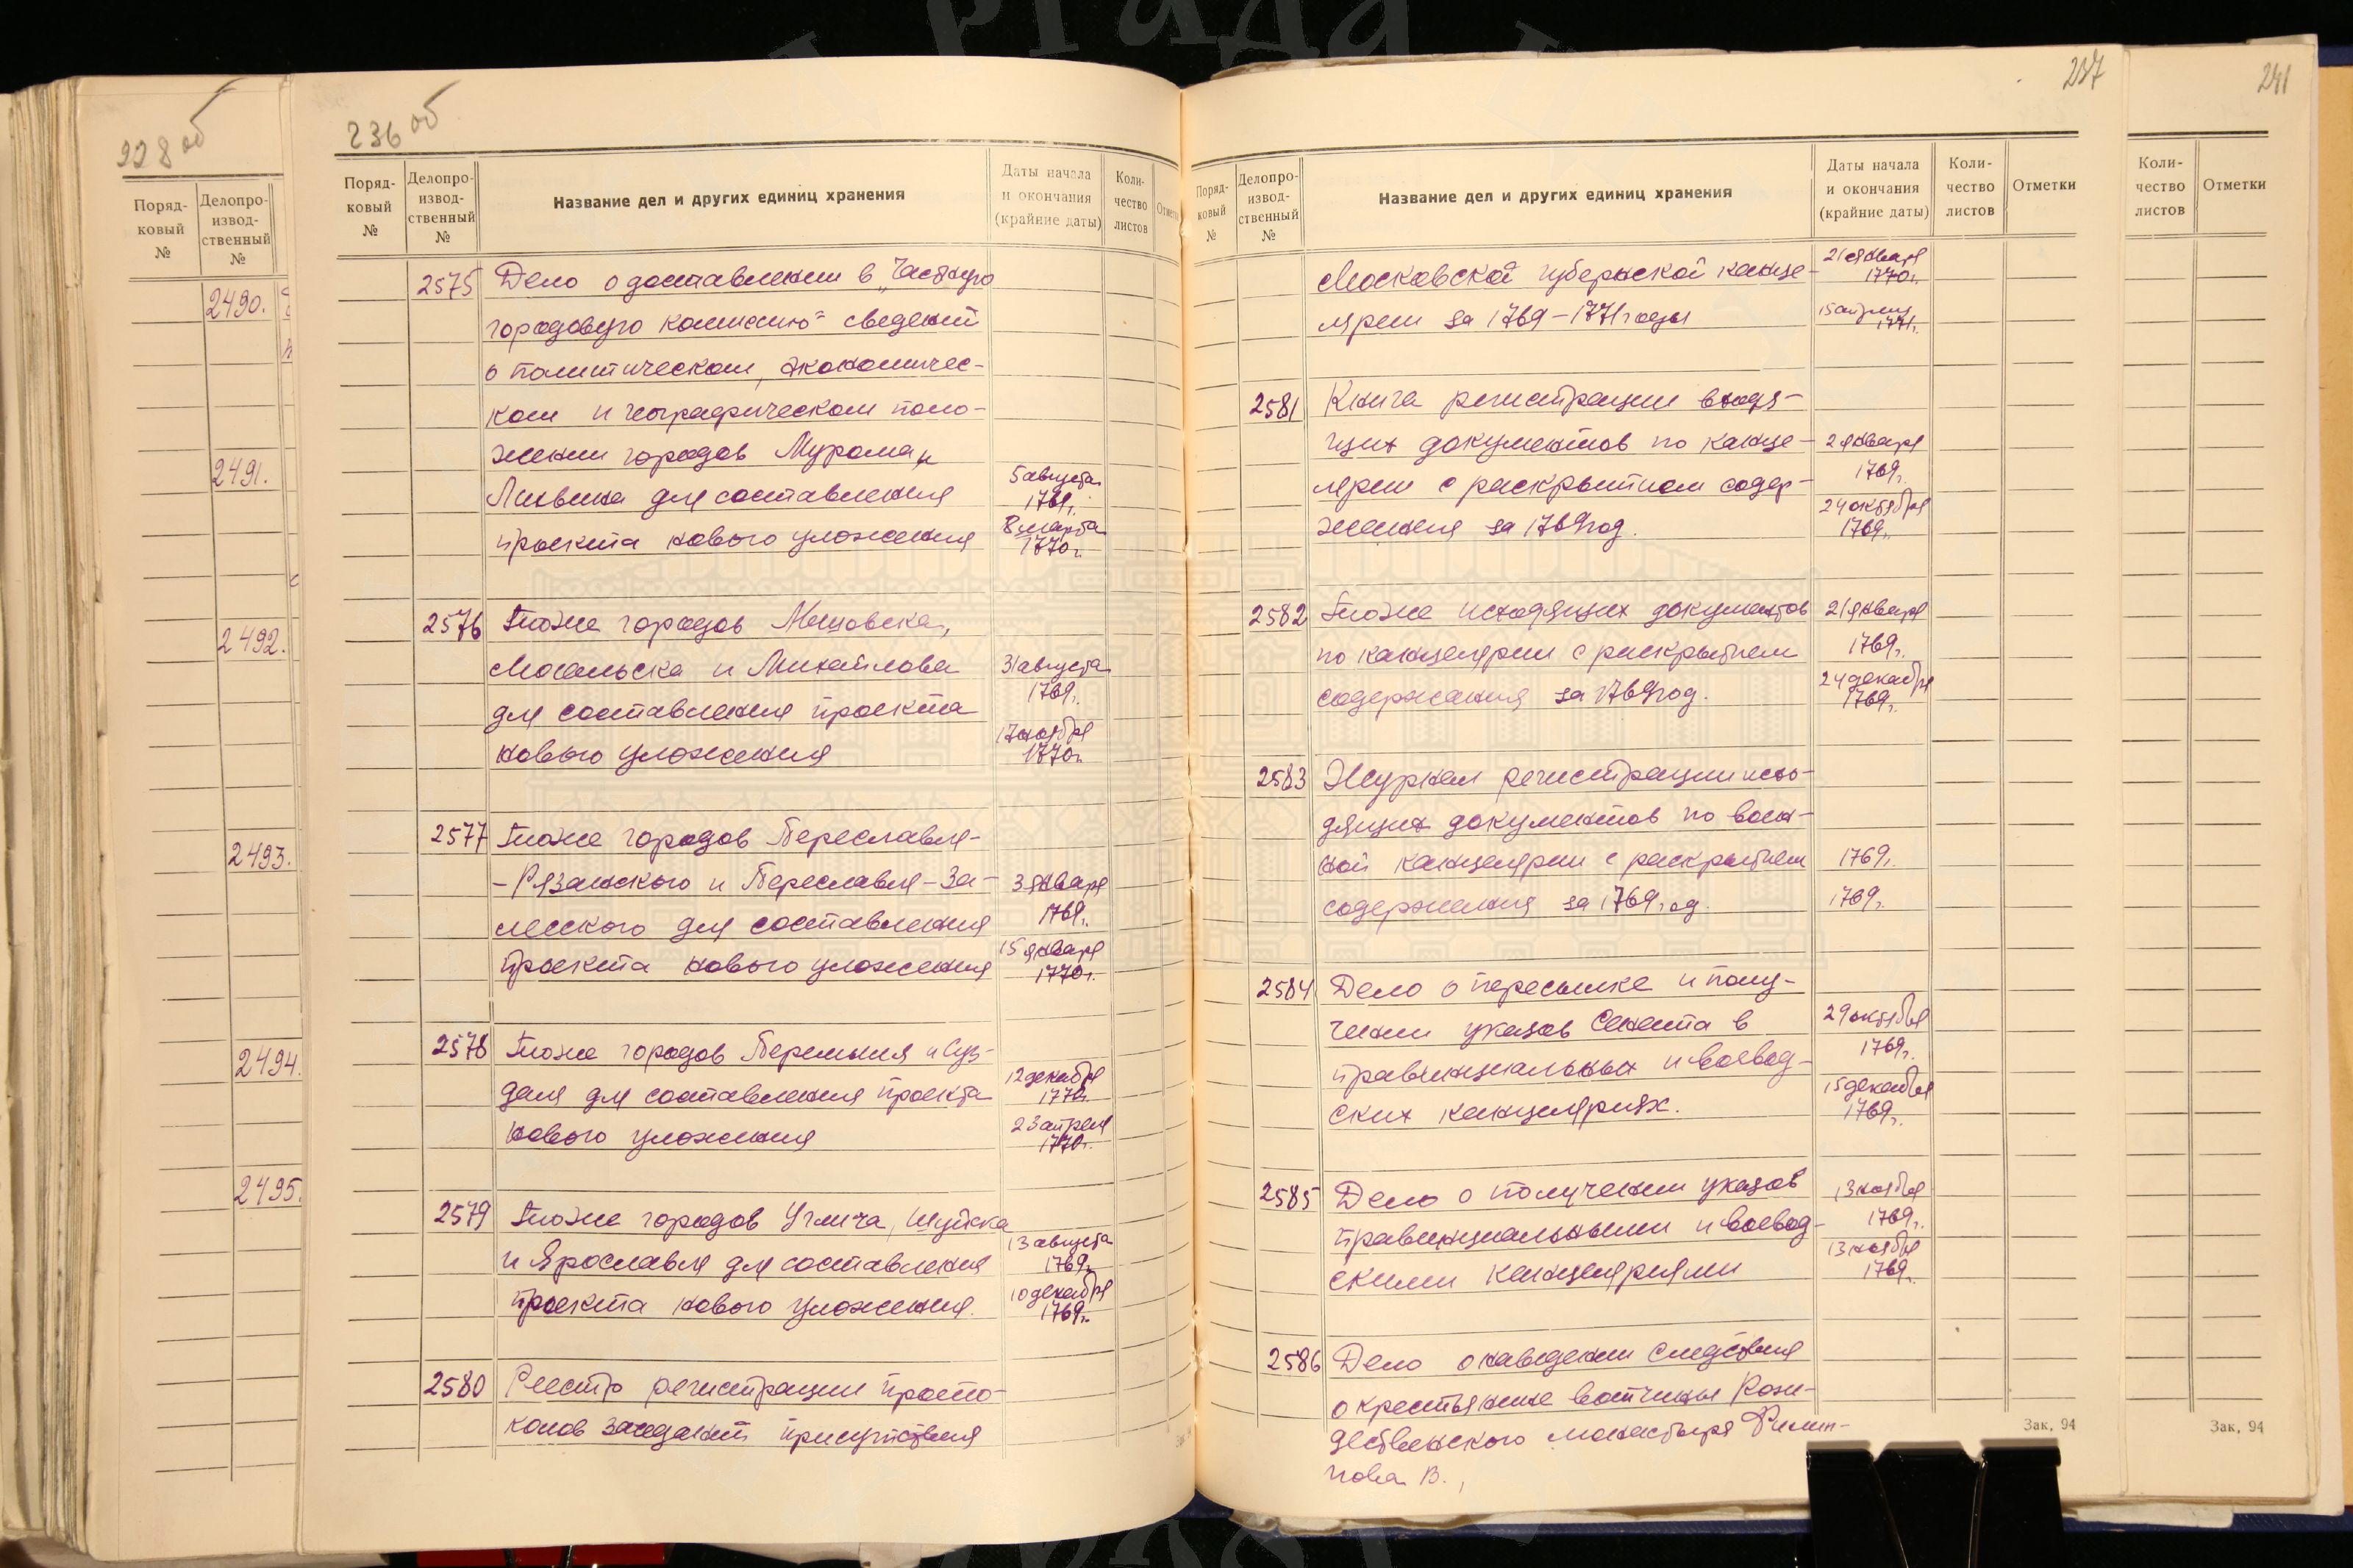 228 об
Поряд-
ковый
№
Делопро-
извод-
ственный
№
2490.
2491.
2492.
2493.
2494.
2495.
236 об
Поряд-
ковый
№
Делопро-
извод-
ственный
№
Название дел и других единиц хранения
Даты начала
и окончания
(крайние даты)
Коли-
чество
листов
2575 Дело о доставлении в „Частную
городовую комиссию" сведений
о политическом, экономичес-
ком и географическом поло-
жении городов Мурома и
Лихвина для составления
проекта нового уложения
5 августа
1769 г.
8 марта
1770 г.
2576 То же городов Мещовска,
Мосальска и Михайлова
для составления проекта
нового уложения
31 августа
1769 г.
17 ноября
1770 г.
2577 То же городов Переславля-
-Рязанского и Переславля-За-
лесского для составления
проекта нового уложения
3 января
1769 г.
15 января
1770 г.
2578 То же городов Перемышля и Суз-
даля для составления проекта
нового уложения
12 декабря
1770 г.
23 апреля
1770 г.
2579 То же городов Углича, Шуйска
и Ярославля для составления
проекта нового уложения.
13 августа
1769 г.
10 декабря
1769 г.
2580 Реестр регистрации прото-
колов заседаний присутствия
237
Поряд-
ковый
№
Делопро-
извод-
ственный
№
Название дел и других единиц хранения
Даты начала
и окончания
(крайние даты)
Коли-
чество
листов
Отметки
Московской губернской канце-
лярии за 1769-1771 годы
21 января
1770 г.
15 апреля
1771 г.
2581 Книга регистрации входя-
щих документов по канце-
лярии с раскрытием содер-
жания за 1769 год.
2 января
1769 г.
24 октября
1769 г.
2582 То же исходящих документов
по канцелярии с раскрытием
содержания за 1769 год.
21 января
1769 г.
24 декабря
1769 г.
2583 Журнал регистрации исхо-
дящих документов по воен-
ной канцелярии с раскрытием
содержания за 1769 год.
1769 г.
1769 г.
2584 Дело о пересылке и полу-
чении указов Сената в
правинциальных и воевод-
ских канцеляриях.
29 октября
1769 г.
15 декабря
1769 г.
2585 Дело о получении указов
правинциальными и воевод-
скими канцеляриями
13 ноября
1769 г.
13 ноября
1769 г.
2586 Дело о наведении следствия
о крестьянине вотчины Рож-
дественского монастыря Филип-
пова В.,
Зак. 94
241
Коли-
чество
листов
Отметки
Зак. 94